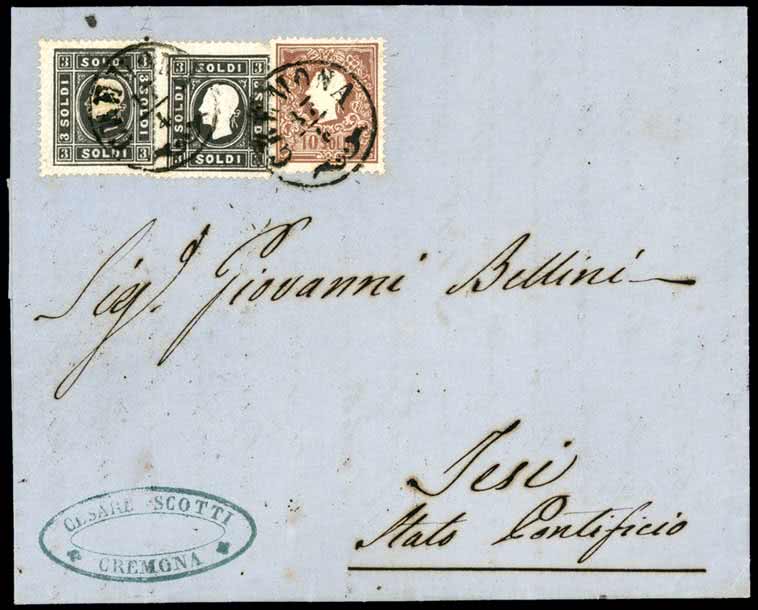 3 SOLDI 3
SOLDI
3 SOLDI 3
3 SOLDI 3
SOLDI
3 SOLDI 3
10 SOL
CREMONA
Sigr. Giovanni Bellini
Jesi
Stato Pontificio
CESARE SCOTTI
CREMONA